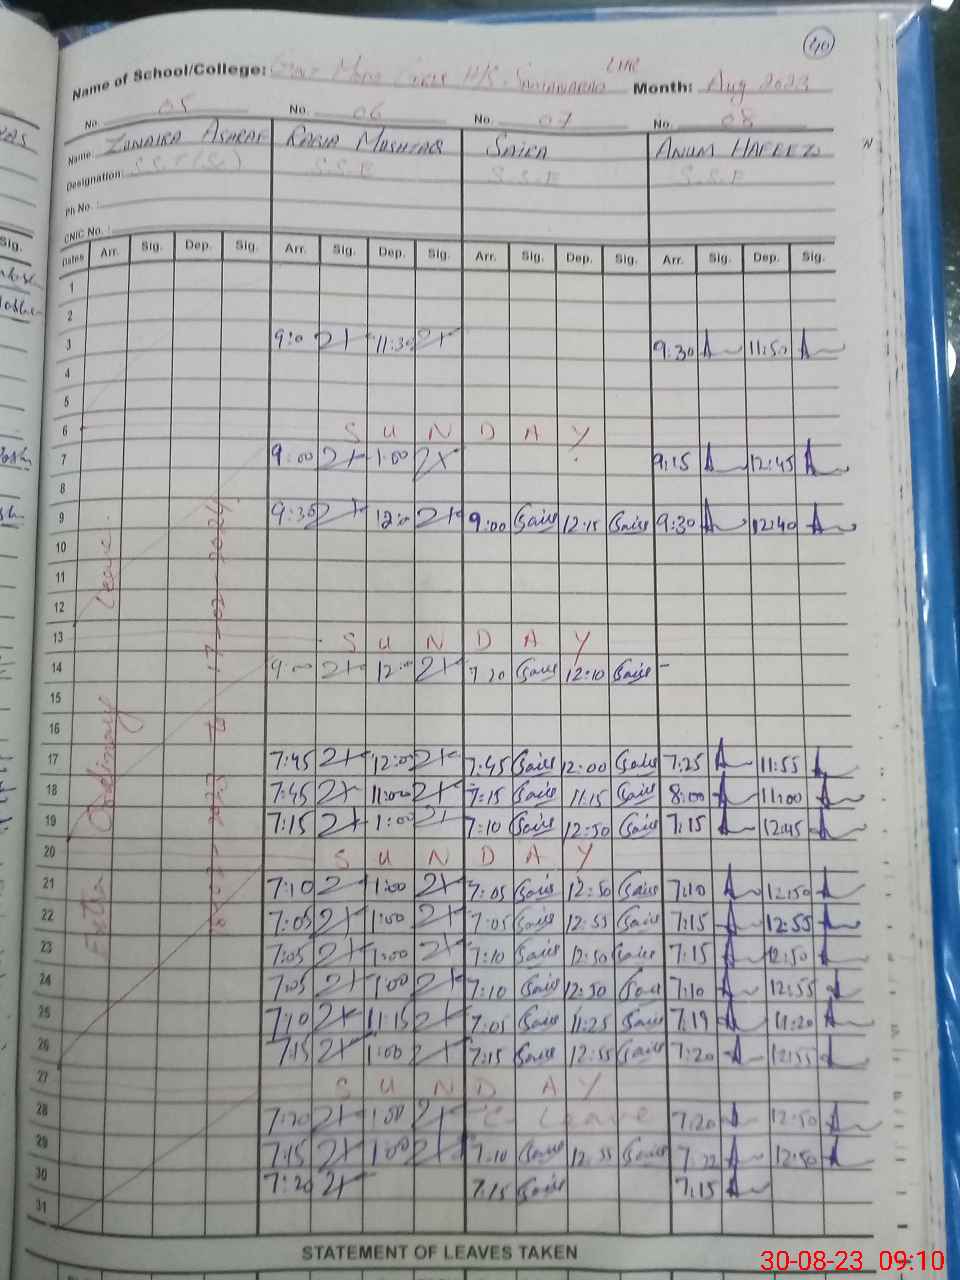 40
Name of School/College: Govt Model Girls H/S. Samanabad LHR Month: Aug 2023
No. 05 No. 06 No. 07 No. 08
Name: ZUNAIRA ASHRAF RABIA MUSHTAQ SAIRA ANUM HAFEEZ
Designation: S.S.T (Sc) S.S.E S.S.E S.S.E
Ph No. :
CNIC No. :
Dates Arr. Sig. Dep. Sig. Arr. Sig. Dep. Sig. Arr. Sig. Dep. Sig. Arr. Sig. Dep. Sig.
1
2
3 9:0 11:30 9:30 11:50
4
5
6 S U N D A Y
7 9:00 1:00 9:15 12:45
8
9 9:30 12:0 9:00 Saira 12:15 Saira 9:30 12:40
10
11
12
13 S U N D A Y
14 9:00 12:00 7:20 Saira 12:10 Saira
15
16
17 7:45 12:00 7:45 Saira 12:00 Saira 7:25 11:55
18 7:45 11:00 7:15 Saira 11:15 Saira 8:00 11:00
19 7:15 1:00 7:10 Saira 12:50 Saira 7:15 12:45
20 S U N D A Y
21 7:10 1:00 7:05 Saira 12:50 Saira 7:10 12:50
22 7:05 1:00 7:05 Saira 12:55 Saira 7:15 12:55
23 7:05 1:00 7:10 Saira 12:50 Saira 7:15 12:50
24 7:05 1:00 7:10 Saira 12:50 Saira 7:10 12:55
25 7:10 11:15 7:05 Saira 11:25 Saira 7:19 11:20
26 7:15 1:00 7:15 Saira 12:55 Saira 7:20 12:55
27 S U N D A Y
28 7:20 1:00 C Leave 7:20 12:50
29 7:15 1:00 7:10 Saira 12:55 Saira 7:22 12:50
30 7:20 7:15 Saira 7:15
31
Extra Ordinary Leave
STATEMENT OF LEAVES TAKEN
30-08-23 09:10